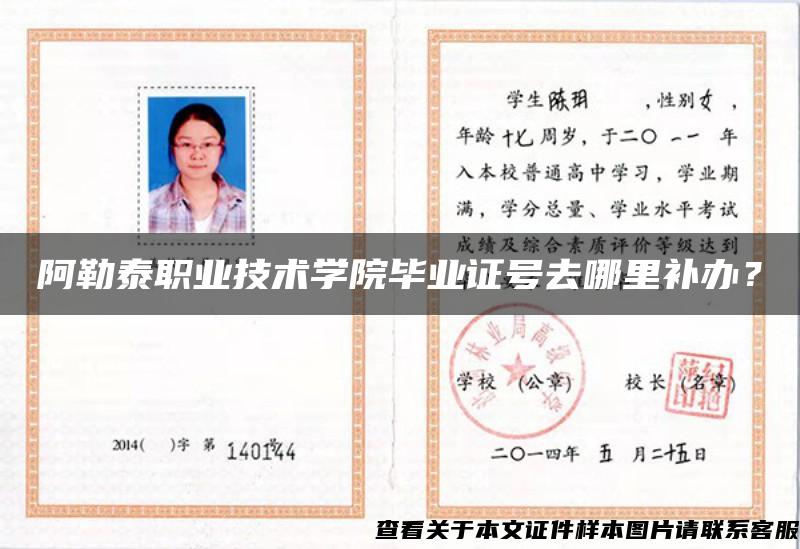 学生陈玥 ，性别女，
年龄十七周岁，于二〇一一年
入本校普通高中学习，学业期
满，学分总量、学业水平考试
成绩及综合素质评价等级达到
阿勒泰职业技术学院毕业证号去哪里补办？
林业局高级
学校 (公章) 校长 (名章)
2014( )字 第 140144 号
二〇一四年 五 月二十五日
查看关于本文证件样本图片请联系客服